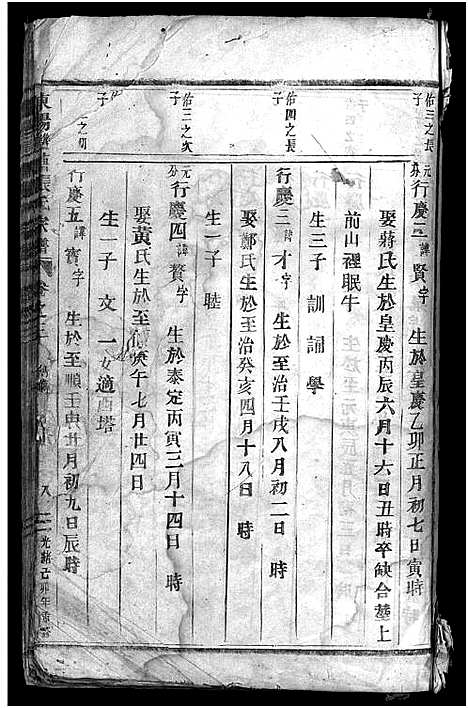 佑三之長子
元分行慶二諱賢字 生於皇慶乙卯正月初七日寅時
娶蔣氏生於皇慶丙辰六月十六日丑時卒缺合塟上
前山裡眠牛
生三子 訓 誦 學
佑四之長子
行慶三諱才字 生於至治壬戌八月初二日 時
娶鄭氏生於至治癸亥四月十八日 時
生一子 睦
佑三之次子
元分行慶四諱贅字 生於泰定丙寅三月十四日 時
娶黃氏生於至順庚午七月廿四日
生一子 文 一女適 塔
之幼子
行慶五諱寳字 生於至順壬申廿月初九日辰時
東陽 張氏宗譜 卷之三 八 光緒己卯年重修